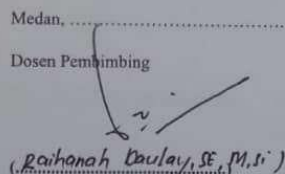 Medan, ........................
Dosen Pembimbing
(Raihanah Daulay, SE, M,si)